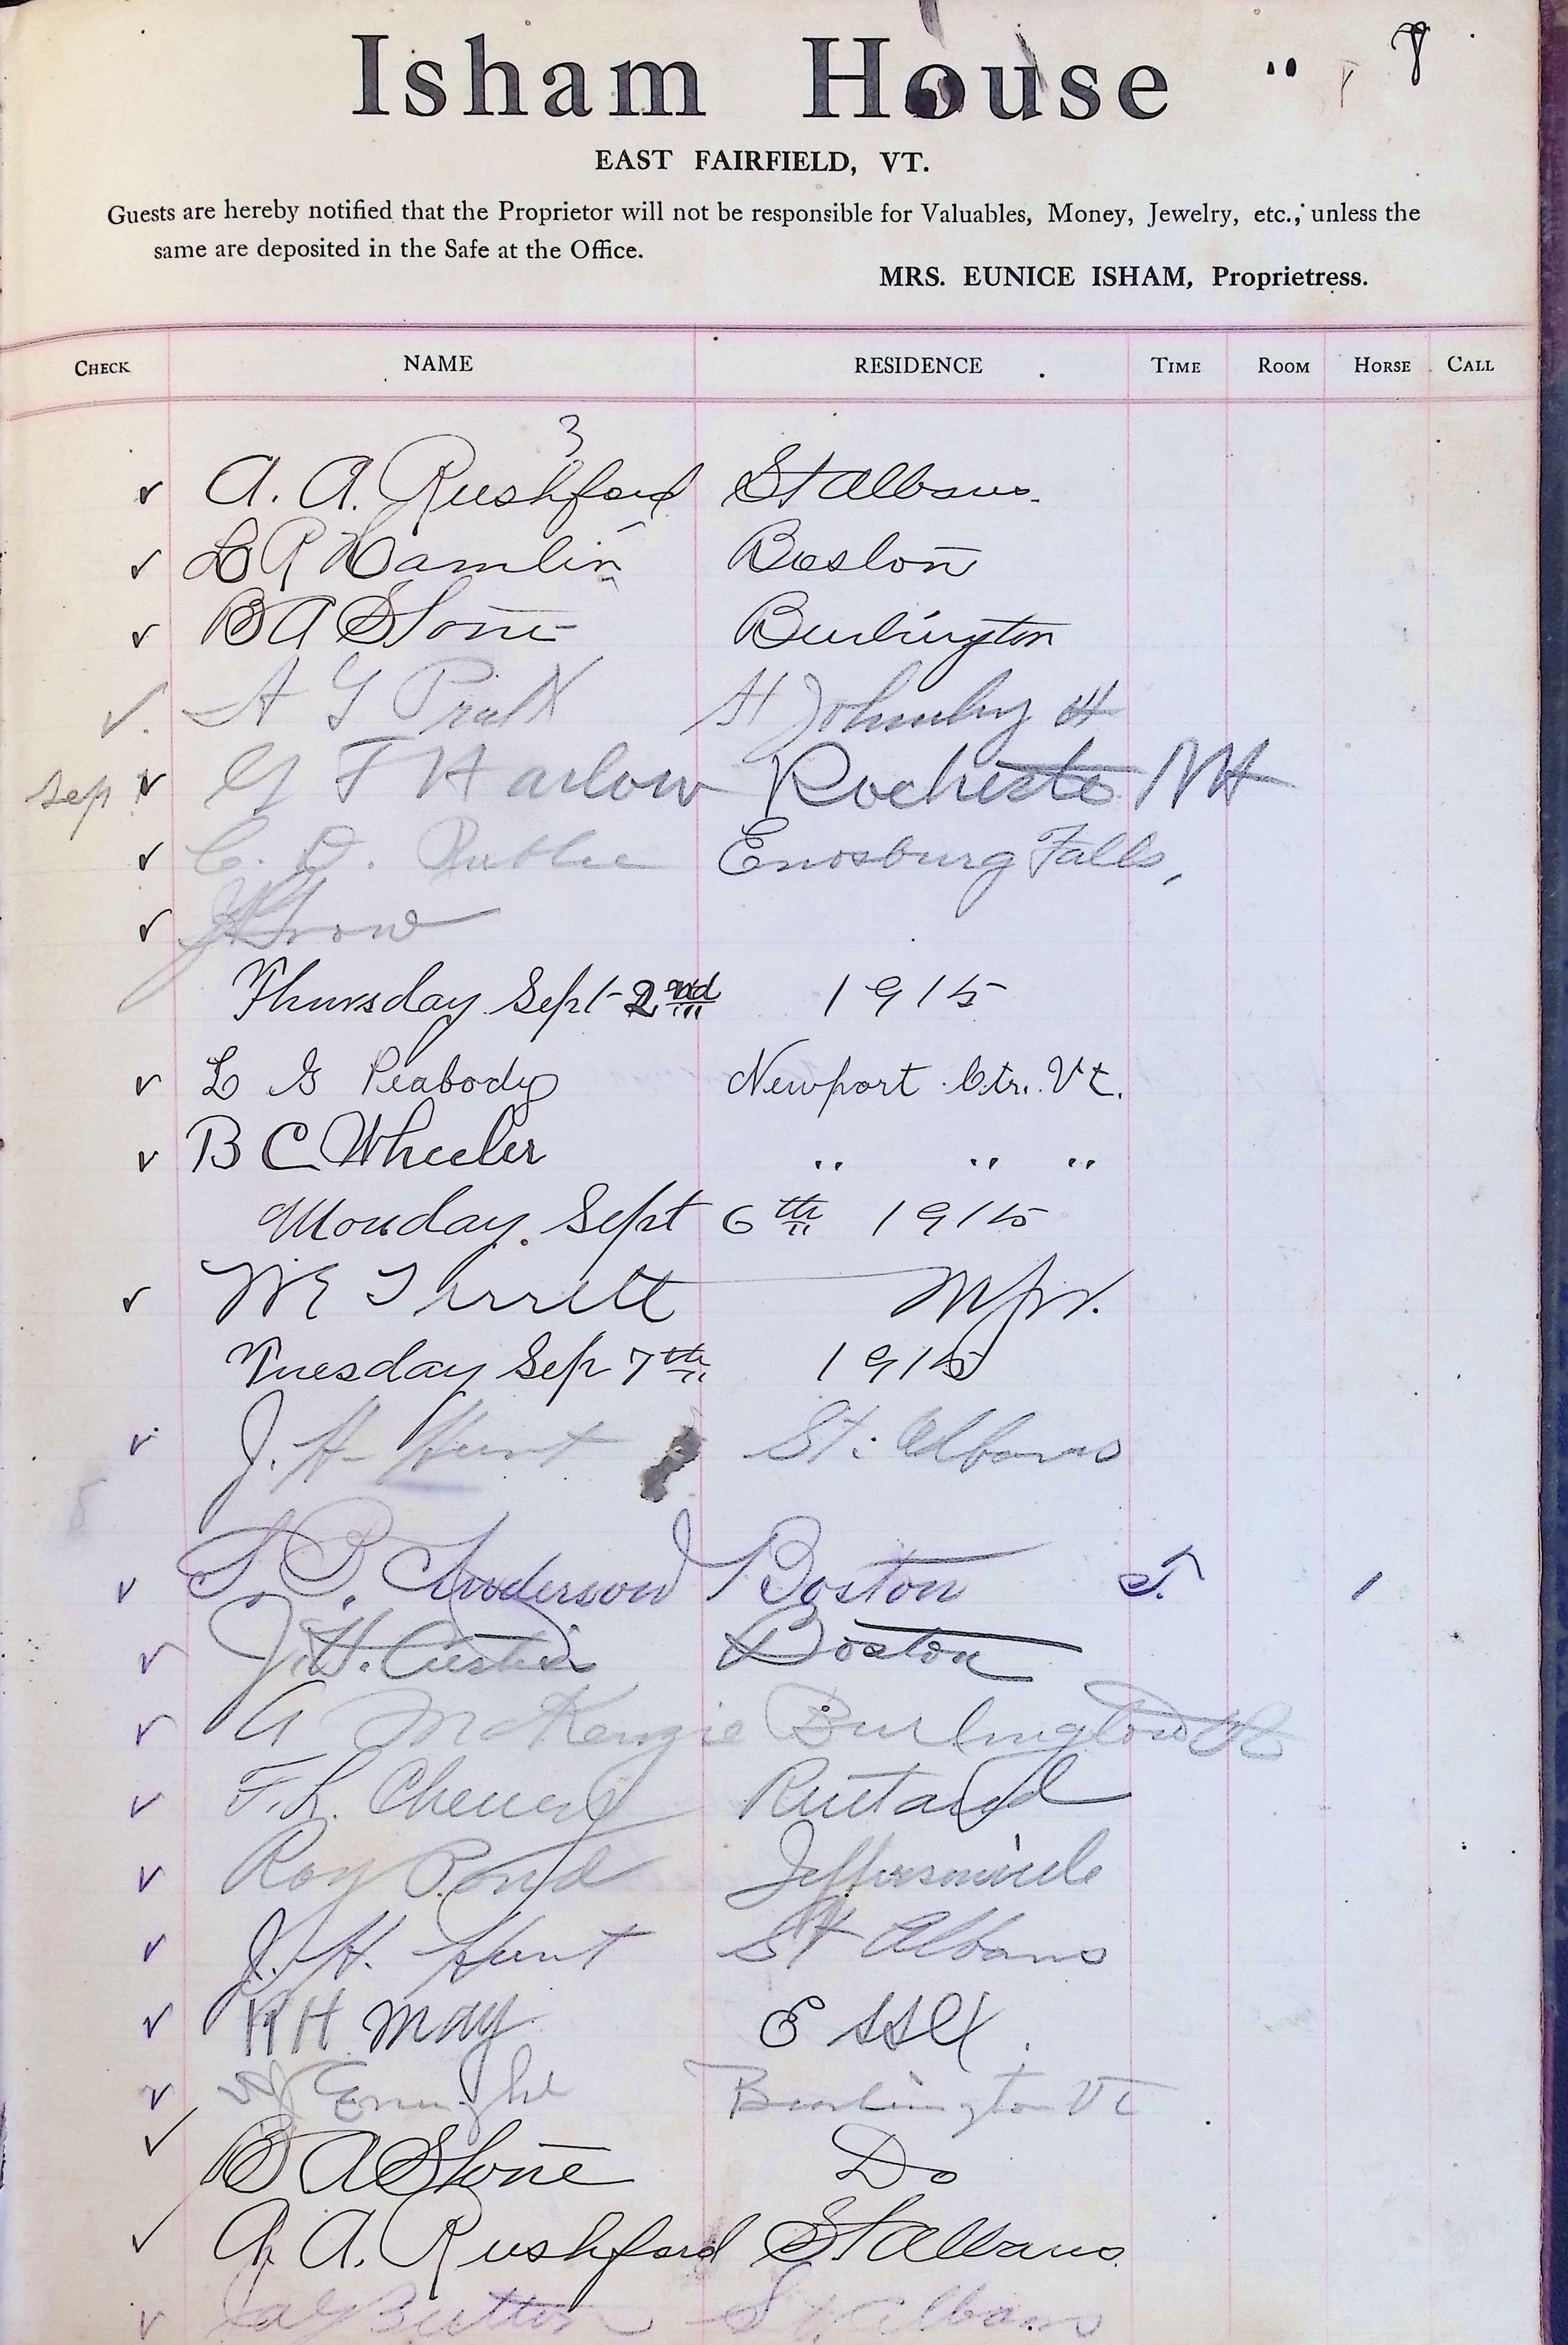 Isham House
EAST FAIRFIELD, VT.
Guests are hereby notified that the Proprietor will not be responsible for Valuables, Money, Jewelry, etc., unless the
same are deposited in the Safe at the Office.
MRS. EUNICE ISHAM, Proprietress.
CHECK NAME RESIDENCE TIME ROOM HORSE CALL
3
✓ A. A. Rushford St Albans.
✓ L R Hamlin Boston
✓ B A Stone Burlington
✓ A G Pratt St Johnsbury
Sep ✓ G F Harlow Rochester NH
✓ C. D. Enosburg Falls,
✓ Grow
Thursday Sept 2nd 1915
✓ L G Peabody Newport Ctr. Vt.
✓ B C Wheeler " " "
Monday. Sept 6th 1915
✓ W E Tirrell
Tuesday Sep 7th 1915
✓ J. H. Hunt St. Albans
✓ S. B. Anderson Boston 1
✓ J. H. Curtis Boston
✓ A McKenzie Burlington Vt
✓ F. L. Cheney Rutland
✓ Roy Pond Jeffersonville
✓ J. H. Hunt St Albans
✓ R H May Essex.
✓ Enright Burlington Vt
✓ B A Stone Do
✓ A. A. Rushford St Albans
✓ Button St Albans